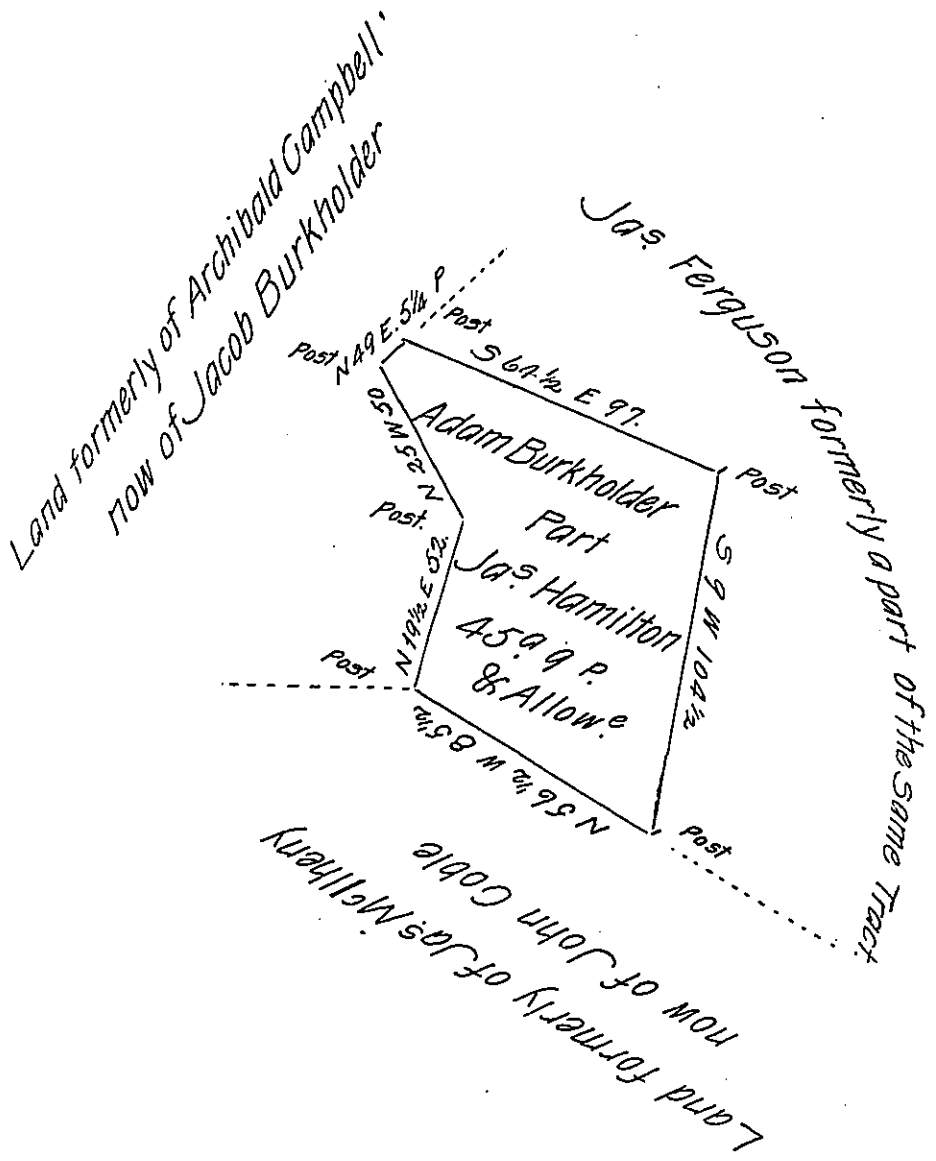 Land formerly of Archibald Campbell
now of Jacob Burkholder
Jas. Ferguson formerly a part of the Same Tract
Post N 49 E. 5 1/4 P
Post
S 67 1/2 E 97.
Post
N 25 W 50
Adam Burkholder
Part
Jas Hamilton
45 a 9 P.
& Allow.e
Post.
N 19 1/2 E 52.
S 9 W 104 1/2
Post
N 56 1/2 W 85 1/2
Post
Land formerly of Jas McIlheny
now of John Coble